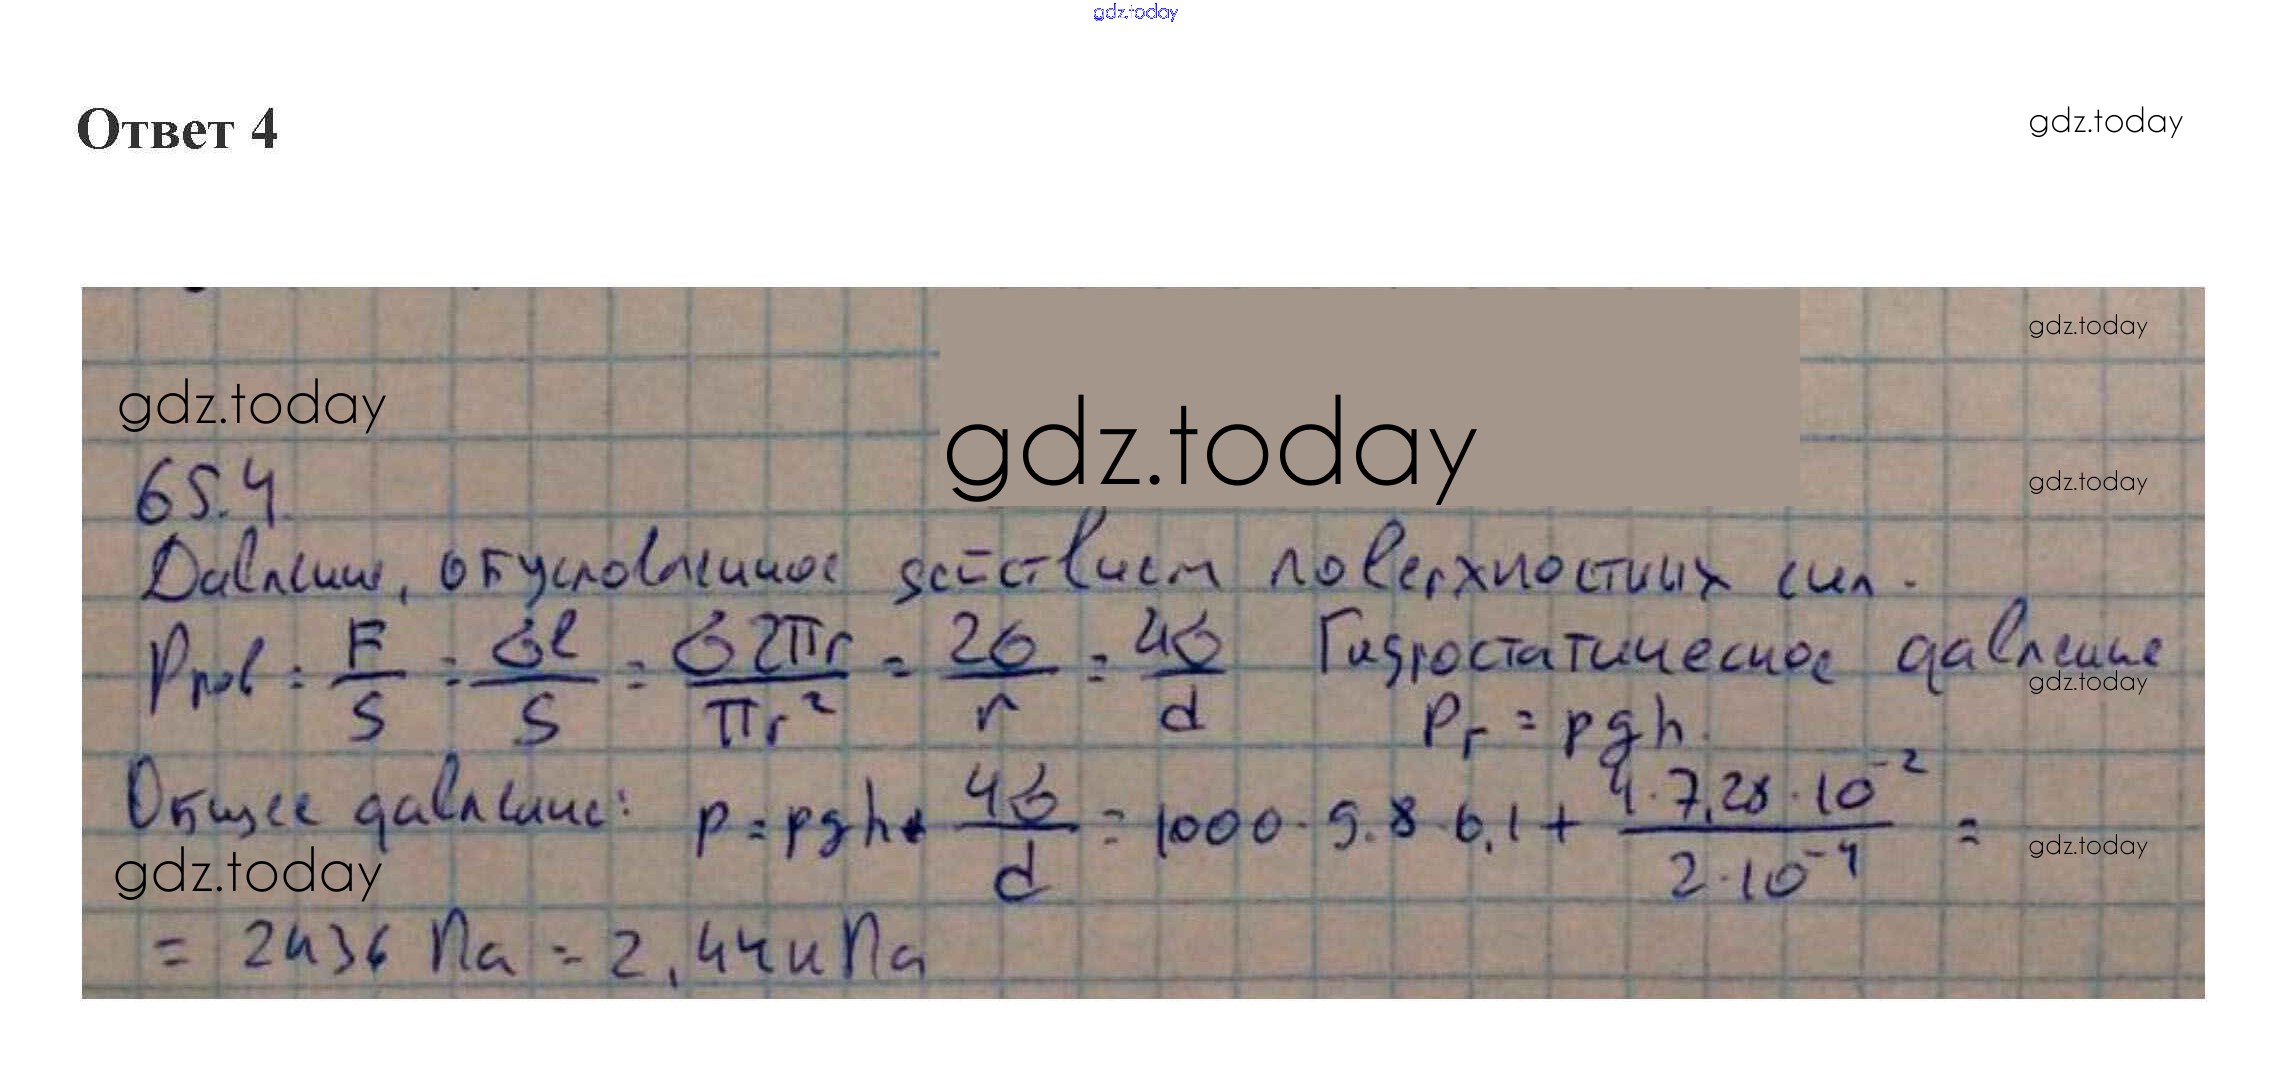 gdz.today
Ответ 4
gdz.today
gdz.today
gdz.today
gdz.today
65.4
gdz.today
Давление, обусловленное действием поверхностных сил.
Pпов = F/S = σl/S = σ2πr/πr² = 2σ/r = 4σ/d Гидростатическое давление
gdz.today
Pг = ρgh.
Общее давление: p = ρgh + 4σ/d = 1000 · 9.8 · 0,1 + 4·7,28·10⁻²/2·10⁻⁴ =
gdz.today
gdz.today
= 2436 Па = 2,44 кПа